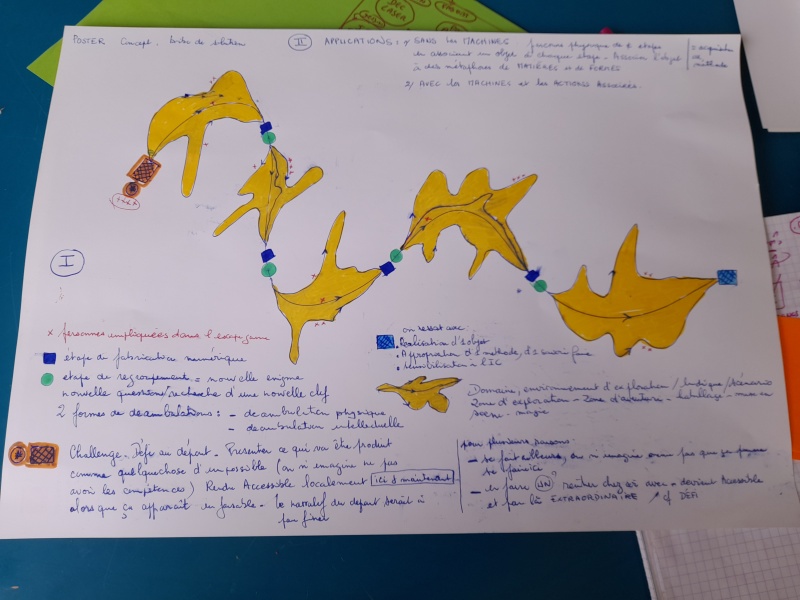 POSTER Concept.
II APPLICATIONS: 1/ SANS les MACHINES. physique de étapes
en associant un objet à chaque étape. Associer l'objet
à des métaphores de MATIÈRES et de FORMES
2/ AVEC les MACHINES et les ACTIONS ASSOCIÉES.
= acquisition
de
méthode
I
x personnes impliquées dans l'escape game
étape de fabrication numérique
étape de regroupement = nouvelle énigme
nouvelle question/recherche d'une nouvelle clef
2 formes de déambulations: - déambulation physique
- déambulation intellectuelle
on ressort avec
. Réalisation d'1 objet
. Appropriation d'1 méthode, d'1 savoir faire
. Sensibilisation à l'IC
Domaine, environnement d'exploration / ludique / scénario
Zone d'exploration - Zone d'aventure - habillage - mise en
scène - magie
Challenge - Défi au départ - Présenter ce qui va être produit
comme quelque chose d'impossible (on n'imagine ne pas
avoir les compétences) Rendre Accessible localement ici & maintenant
alors que ça apparaît infaisable - le narratif du départ serait à
pour plusieurs raisons
- se fait ailleurs, on n'imagine pas que ça
se fasse ici
- en faire UN rentrer chez soi avec - devient Accessible
et par là EXTRAORDINAIRE DÉFI